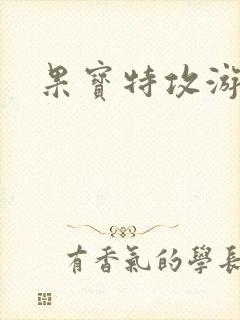 果寶特攻游
有香氣的學長